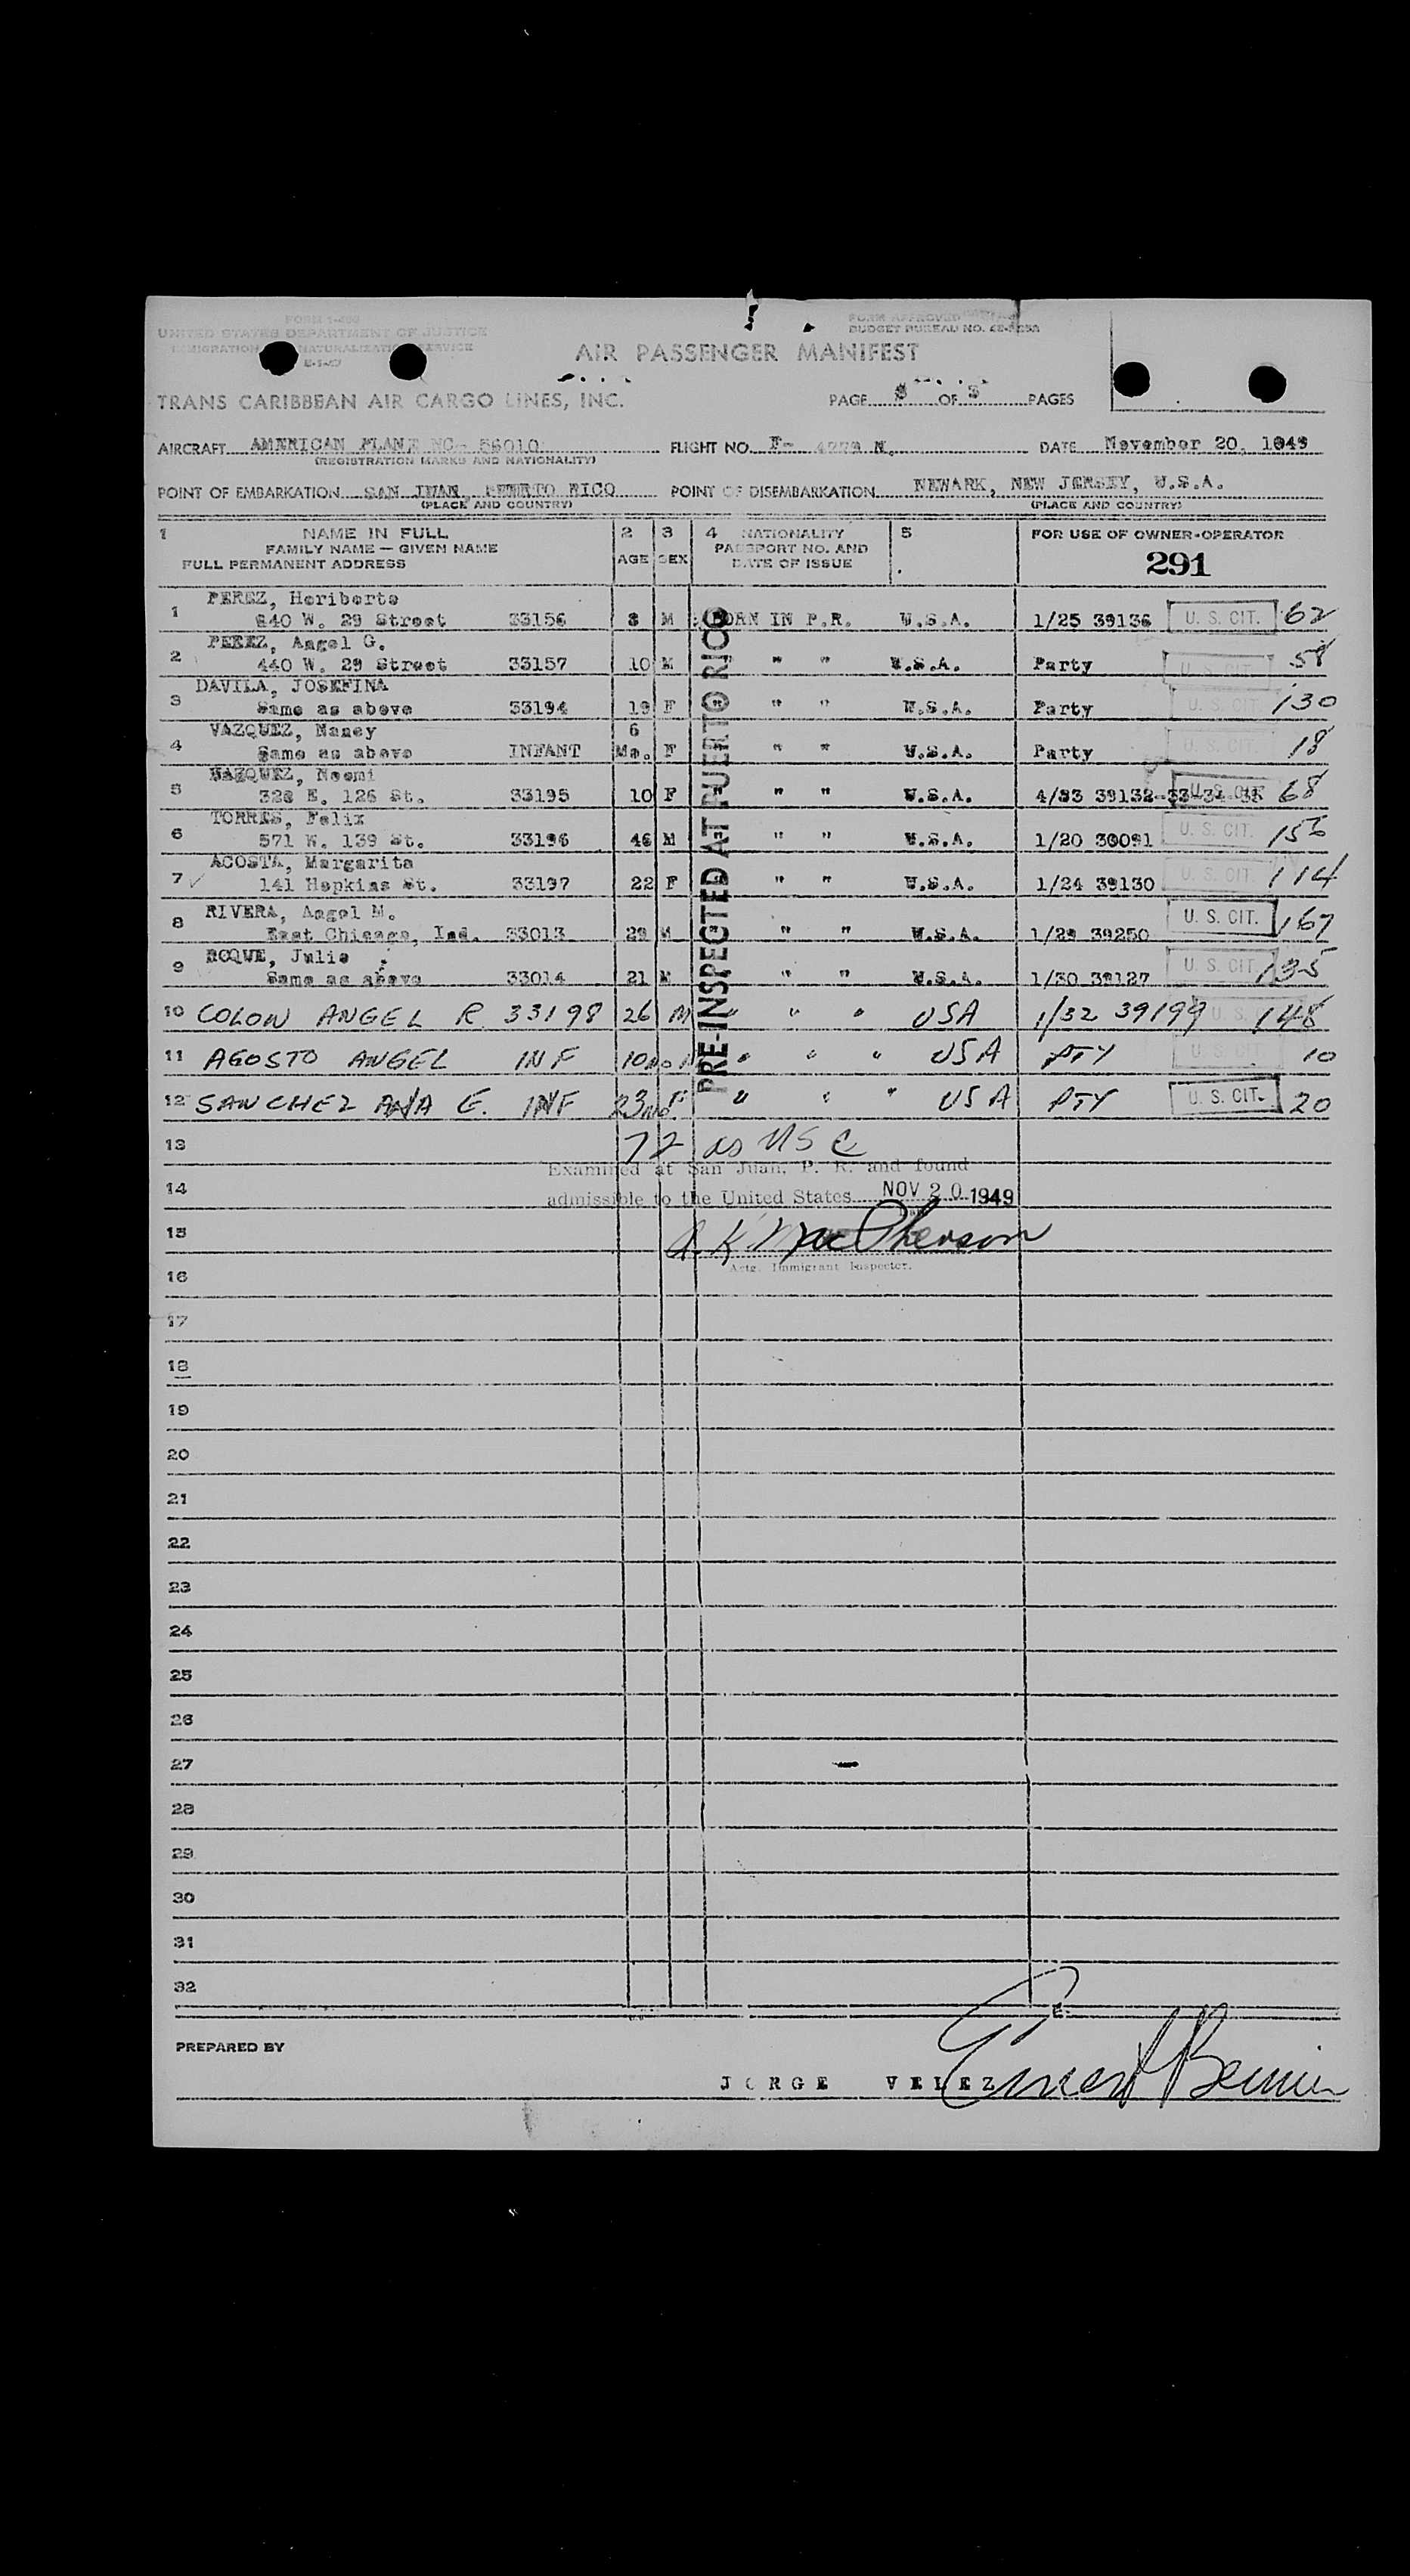 FORM I-466
UNITED STATES DEPARTMENT OF JUSTICE
IMMIGRATION NATURALIZATION SERVICE
FORM APPROVED
BUDGET BUREAU NO.
AIR PASSENGER MANIFEST
TRANS CARIBBEAN AIR CARGO LINES, INC.
PAGE 3 OF 3 PAGES
AIRCRAFT AMERICAN PLANE NC- 56010 FLIGHT NO. F- N. DATE November 20, 1949
(REGISTRATION MARKS AND NATIONALITY)
POINT OF EMBARKATION SAN JUAN, PUERTO RICO POINT OF DISEMBARKATION NEWARK, NEW JERSEY, U.S.A.
(PLACE AND COUNTRY) (PLACE AND COUNTRY)
1 NAME IN FULL 2 3 4 NATIONALITY 5 FOR USE OF OWNER-OPERATOR
FAMILY NAME — GIVEN NAME AGE SEX PASSPORT NO. AND
FULL PERMANENT ADDRESS DATE OF ISSUE 291
PRE-INSPECTED AT PUERTO RICO
PEREZ, Heriberto
1 840 W. 29 Street 33156 8 M BORN IN P.R. U.S.A. 1/25 39136 U. S. CIT. 62
PEREZ, Angel G.
2 440 W. 29 Street 33157 10 M " " U.S.A. Party U. S. CIT. 58
DAVILA, JOSEFINA
3 Same as above 33194 19 F " " " U.S.A. Party U. S. CIT. 130
VAZQUEZ, Nancy 6
4 Same as above INFANT Mo. F " " U.S.A. Party U. S. CIT. 18
VAZQUEZ, Noemi
5 328 E. 126 St. 33195 10 F " " U.S.A. 4/33 39132-33-34-35 U. S. CIT. 68
TORRES, Felix
6 571 W. 139 St. 33196 46 M " " U.S.A. 1/20 30091 U. S. CIT. 156
ACOSTA, Margarita
7 141 Hopkins St. 33197 22 F " " U.S.A. 1/24 39130 U. S. CIT. 114
RIVERA, Angel M.
8 East Chicago, Ind. 33013 29 M " " U.S.A. 1/29 39250 U. S. CIT. 167
ROQUE, Julio
9 Same as above 33014 21 M " " U.S.A. 1/30 39127 U. S. CIT. 135
10 COLON ANGEL R 33198 26 M " " " USA 1/32 39199 U. S. C 148
11 AGOSTO ANGEL INF 10 mo M " " " USA PTY U. S. CIT. 10
12 SANCHEZ ANA E. INF 23 mo F " " " USA PTY U. S. CIT. 20
13 72 as USC
Examined at San Juan, P. R. and found
14 admissible to the United States NOV 20 1949
15 A. K. MacPherson
Actg. Immigrant Inspector.
16
17
18
19
20
21
22
23
24
25
26
27
28
29
30
31
32
PREPARED BY
JORGE VELEZ